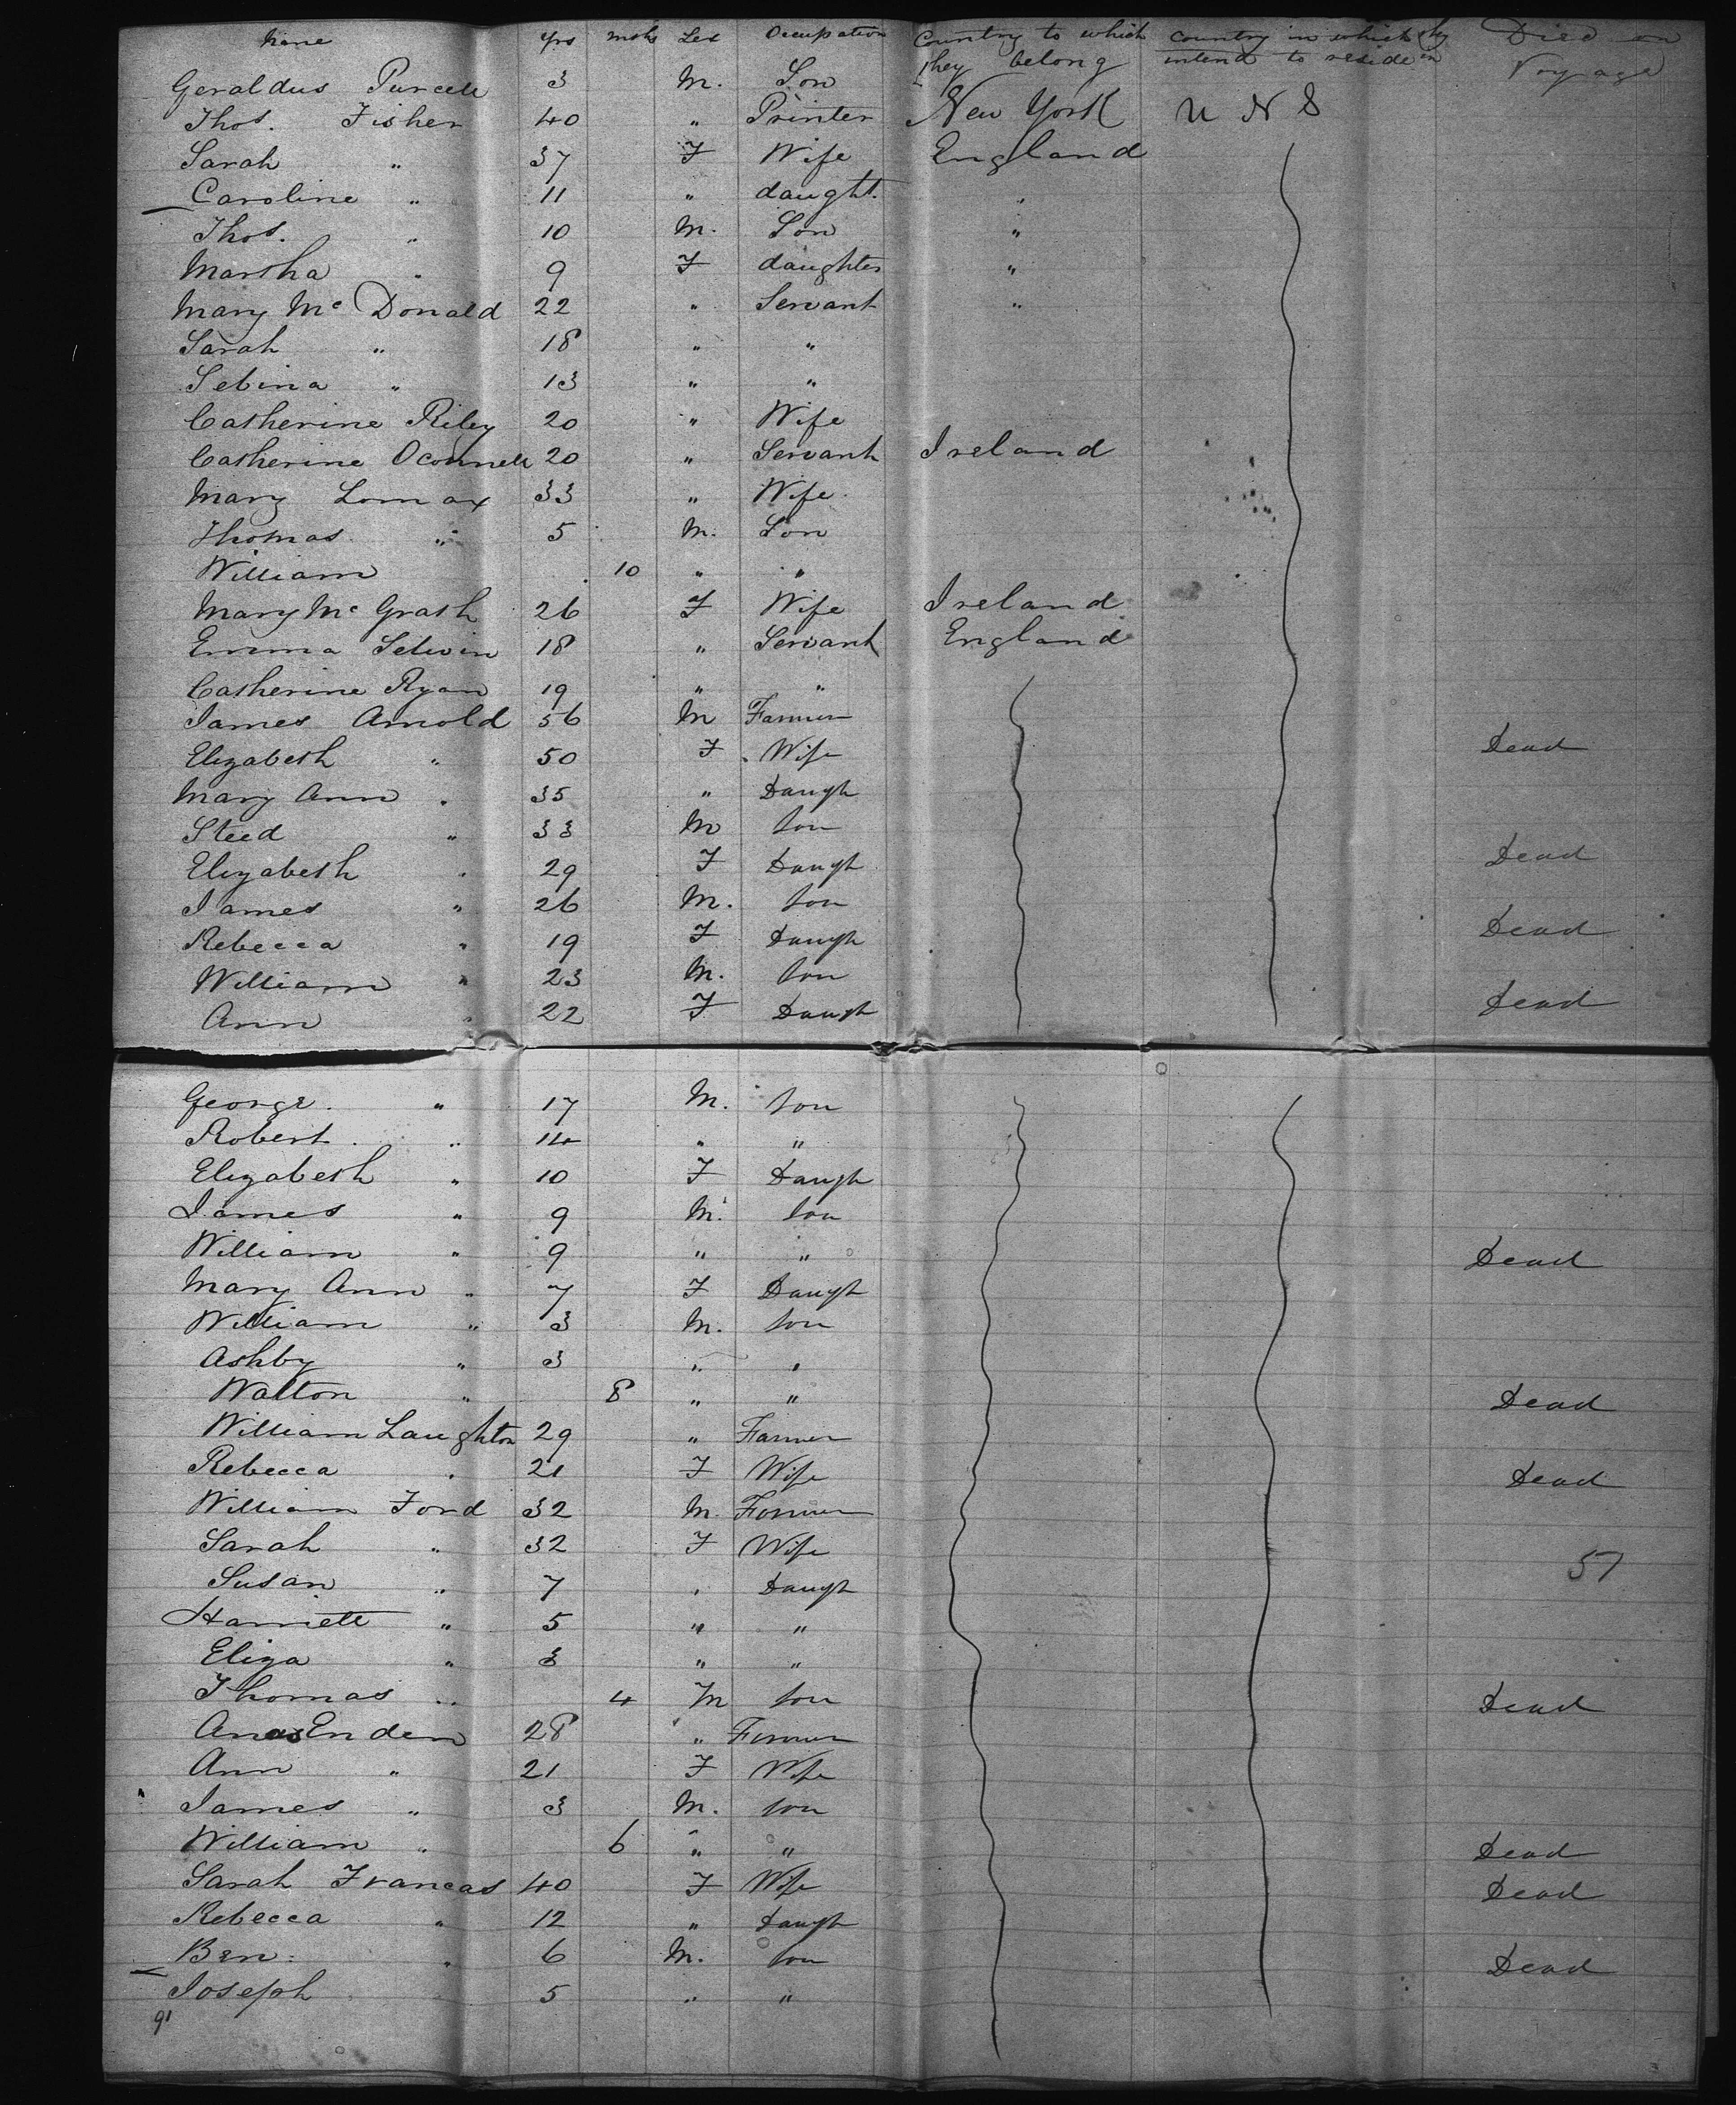 Name Yrs mths Sex Occupation Country to which they belong Country in which they intend to reside in Died on Voyage
Geraldus Purcell 3 M. Son
Thos. Fisher 40 " Printer New York U N S
Sarah " 37 F Wife England
Caroline " 11 " daught. "
Thos. " 10 M. Son "
Martha " 9 F daughter "
Mary Mc Donald 22 " Servant "
Sarah " 18 " "
Sebina " 13 " "
Catherine Riley 20 " Wife
Catherine Oconnell 20 " Servant Ireland
Mary Lomax 33 " Wife
Thomas " 5 M. Son
William 10 " "
Mary Mc Grath 26 F Wife Ireland
Emma Selwin 18 " Servant England
Catherine Ryan 19 " "
James Arnold 56 M Farmer
Elizabeth " 50 F Wife Dead
Mary Ann " 35 " Daugh
Steed " 33 M son
Elizabeth " 29 F Daugh Dead
James " 26 M. son
Rebecca " 19 F Daugh Dead
William " 23 M. son
Ann " 22 F Daugh Dead
George. " 17 M. son
Robert. " 14 " "
Elizabeth " 10 F Daugh
James " 9 M. son
William " 9 " " Dead
Mary Ann " 7 F Daugh
William " 3 M. son
Ashby " 3 " "
Walton " 8 " " Dead
William Laughton 29 " Farmer
Rebecca " 21 F Wife Dead
William Ford 32 M. Farmer
Sarah " 32 F Wife
57
Susan " 7 " Daugh
Harriett " 5 " "
Eliza " 3 " "
Thomas " 4 M son Dead
Enden 28 " Farmer
Ann " 21 F Wife
James " 3 M. son
William " 6 " " Dead
Sarah Francas 40 F Wife Dead
Rebecca " 12 " Daugh
Ben: " 6 M. son Dead
Joseph 5 " "
91